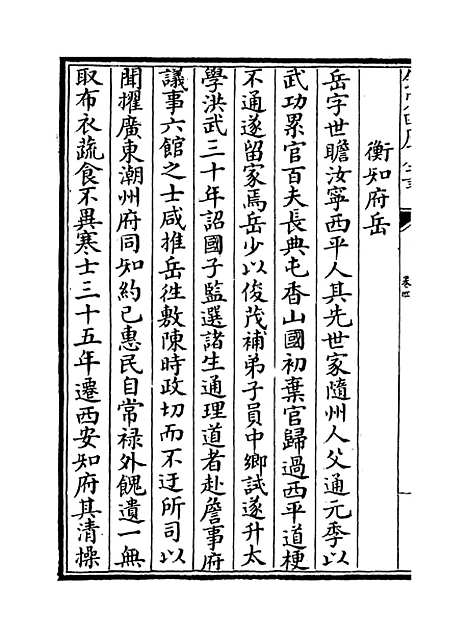 衡知府岳
岳字世瞻汝寧西平人其先世家隨州人父通元季以
武功累官百夫長典屯香山國初棄官歸過西平道梗
不通遂留家焉岳少以俊茂補弟子員中鄉試遂升太
學洪武三十年詔國子監選諸生通理道者赴詹事府
議事六館之士咸推岳徃敷陳時政切而不迂所司以
聞擢廣東潮州府同知約己惠民自常禄外餽遺一無
取布衣蔬食不異寒士三十五年遷西安知府其清操